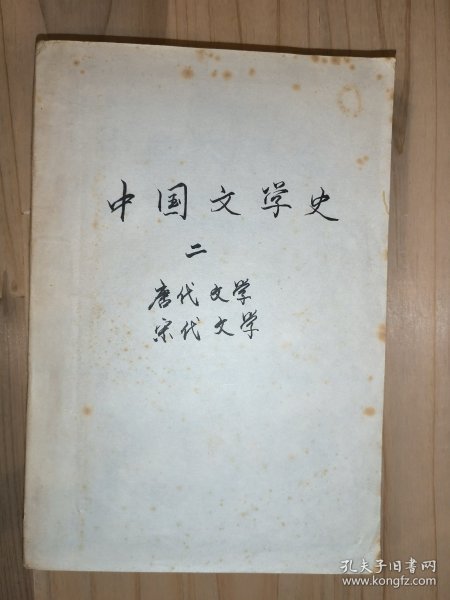 中国文学史
二
唐代文学
宋代文学
孔夫子旧书网
www.kongfz.com